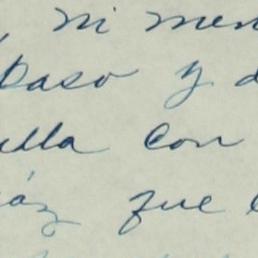 , ni men
paso y d
ella con
áz que